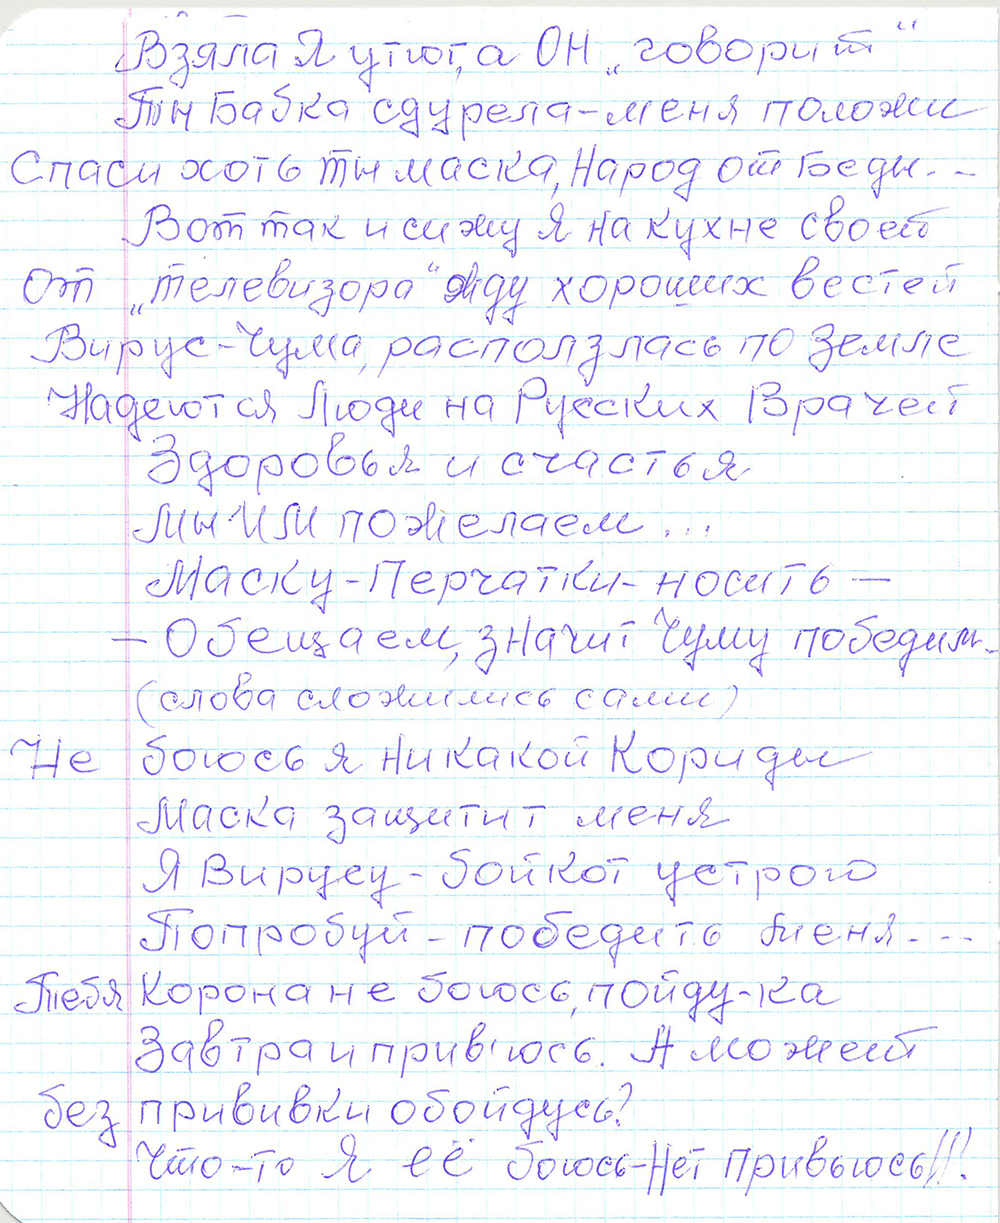 Взяла Я утюг, а ОН „говорит“
Ты Бабка сдурела-меня положи
Спаси хоть ты маска, Народ от Беды...
Вот так и сижу Я на кухне своей
От „телевизора“ жду хороших вестей
Вирус-Чума, расползлась по Земле
Надеются Люди на Русских Врачей
Здоровья и счастья
Мы ИМ пожелаем...
Маску-Перчатки-носить —
— Обещаем, значит Чуму победим..
(слова сложились сами)
Не боюсь я никакой Кориды
Маска защитит меня
Я Вирусу-бойкот устрою
Попробуй-победить меня...
Тебя Корона не боюсь, пойду-ка
Завтра и привьюсь. А может
без прививки обойдусь?
Что-то Я её боюсь-Нет Привьюсь!!!